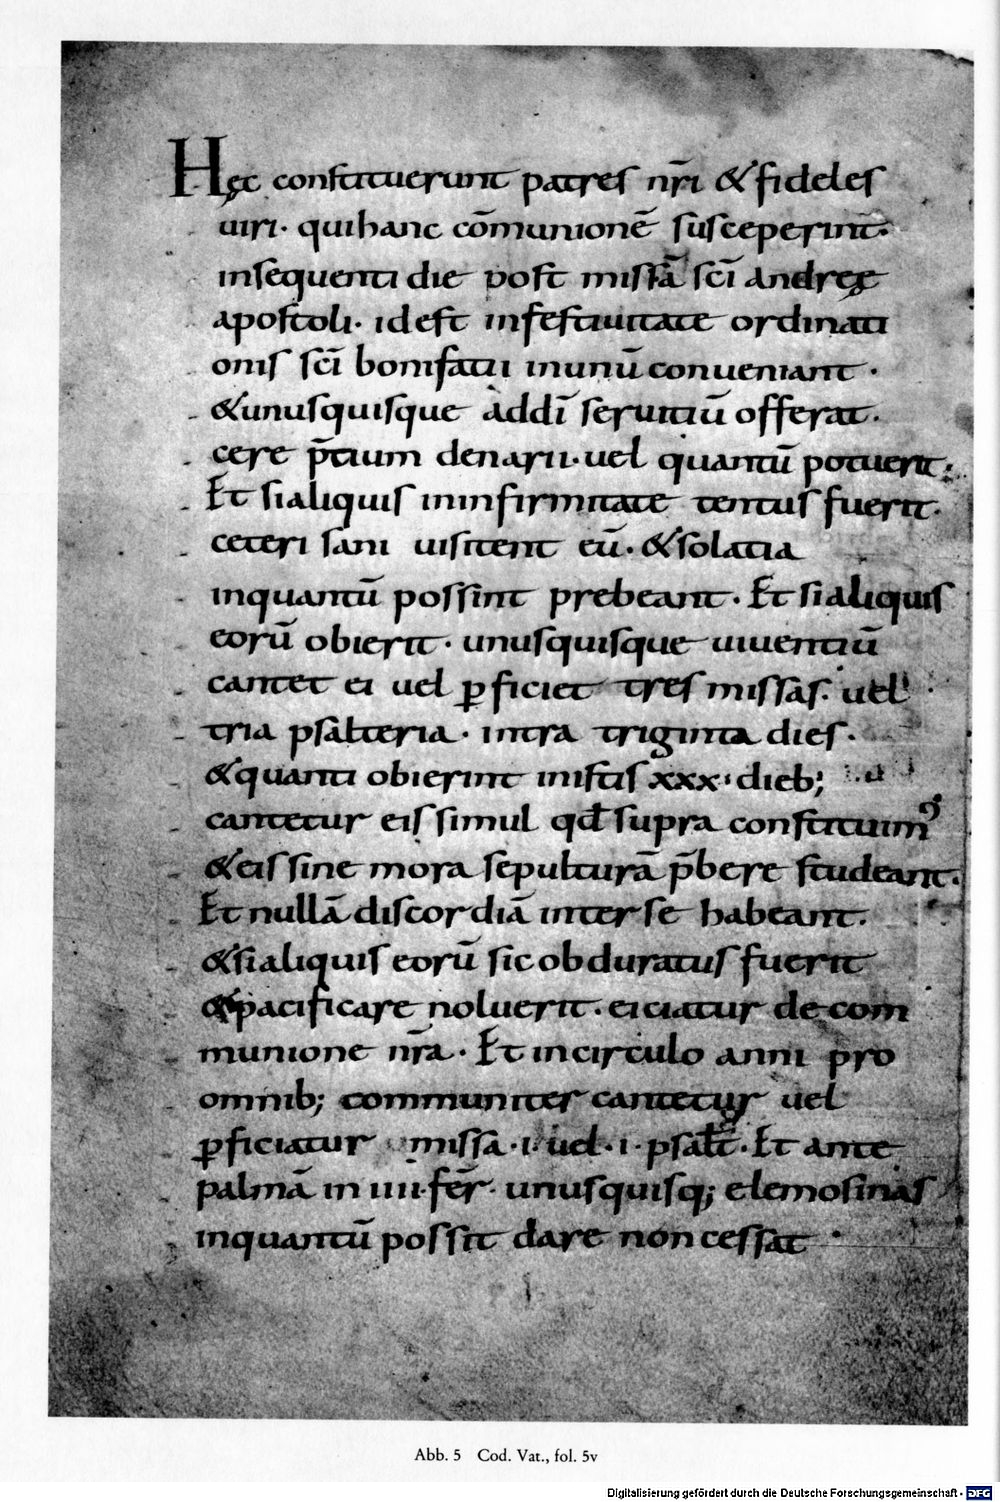 Hęc constituerunt patres nr̄i & fideles
uiri· qui hanc cōmunionē susceperint·
in sequenti die post missā sc̄i andreę
apostoli· id est in festiuitate ordinati
onis sc̄i bonifatii in unū conueniant·
& unusquisque ad dī seruitiū offerat·
cere p̄tium denarii· uel quantū potuerit;
Et si aliquis in infirmitate tentus fuerit·
ceteri sani uisitent eū· & solatia
inquantū possint prebeant· Et si aliquis
eorū obierit· unusquisque uiuentiū
cantet ei uel ꝑficiet tres missas· uel
tria psalteria· intra triginta dies·
& quanti obierint in istis xxx· dieb;
cantetur eis simul qđ supra constituimꝰ
& eis sine mora sepulturā p̄bere studeant·
Et nullā discordiā inter se habeant·
& si aliquis eorū sic obduratus fuerit
& pacificare noluerit· eiciatur de com
munione nr̄a· Et in circulo anni pro
omnib; communiter cantetur uel
ꝑficiatur missa ·i· uel ·i· psalt̄· Et ante
palmā in iiii· fēr· unusquisq; elemosinas
inquantū possit dare non cessat·
Abb. 5 Cod. Vat., fol. 5v
Digitalisierung gefördert durch die Deutsche Forschungsgemeinschaft · DFG